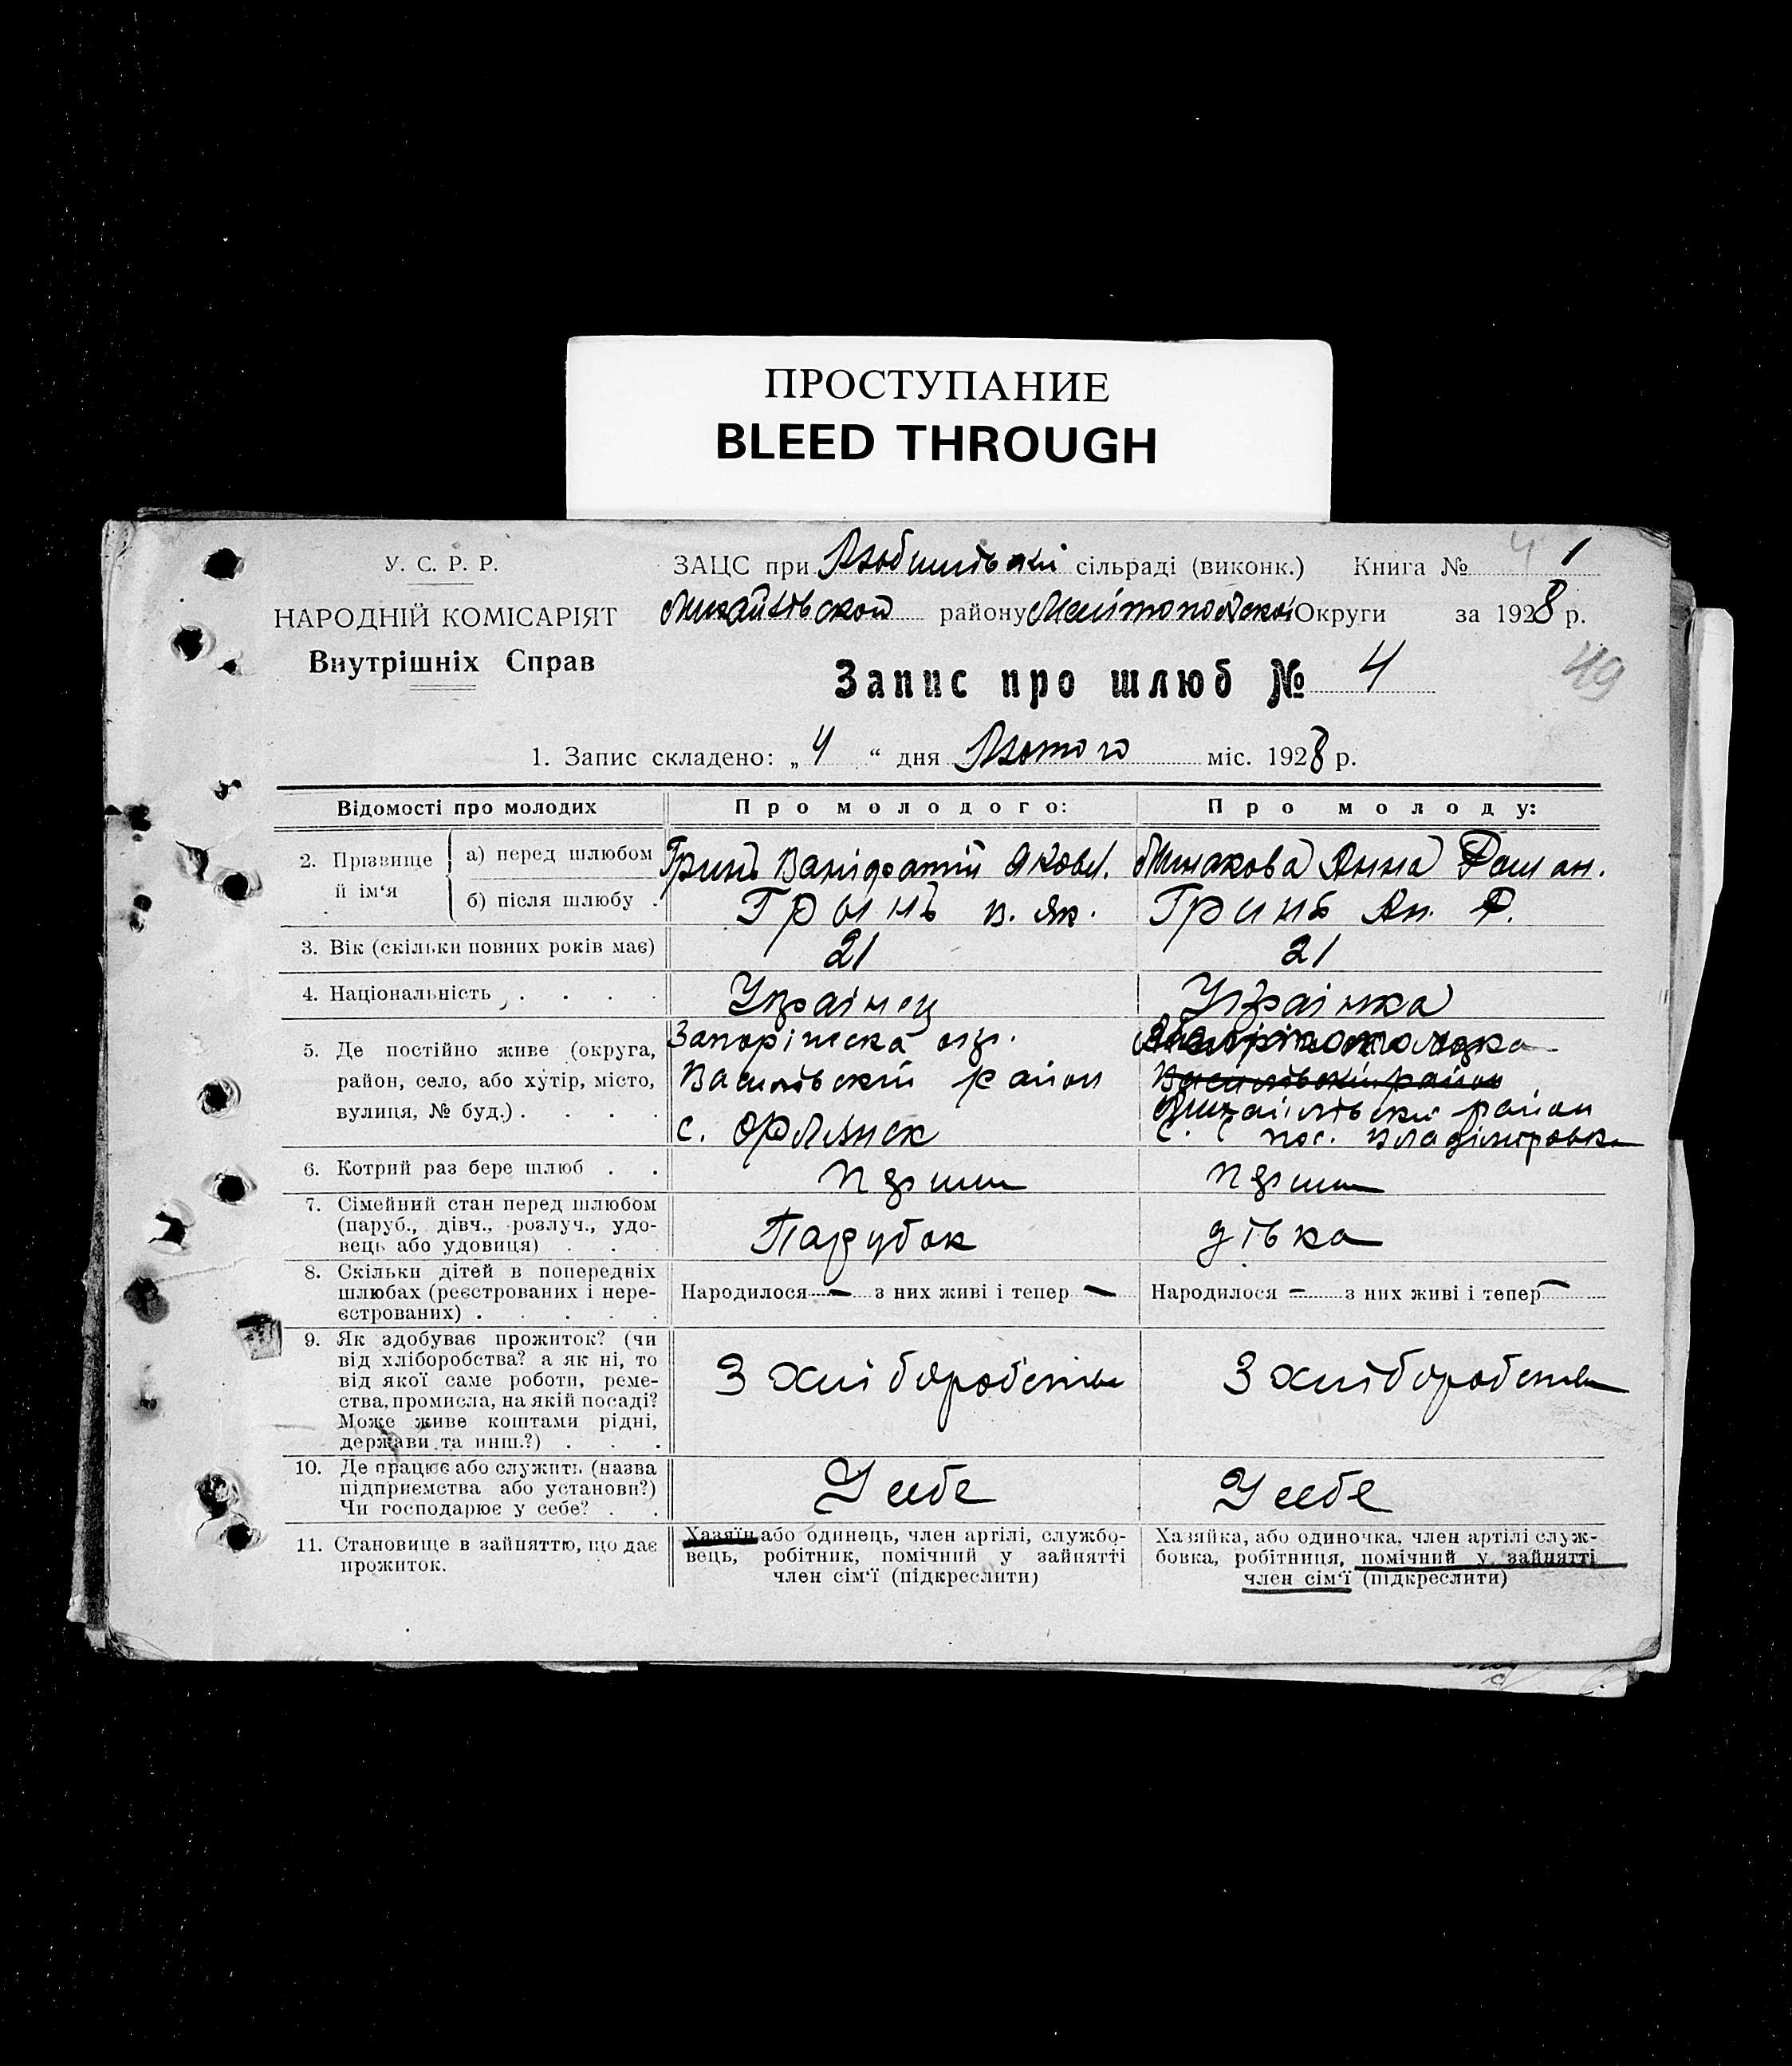 ПРОСТУПАНИЕ
BLEED THROUGH
У. С. Р. Р.
НАРОДНІЙ КОМІСАРІЯТ
Внутрішніх Справ
ЗАЦС при сільраді (виконк.) Книга № 4 1
району Округи за 1928 р.
49
Запис про шлюб № 4
1. Запис складено: „ 4 “ дня Лютого міс. 1928 р.
Відомості про молодих Про молодого: Про молоду:
2. Прізвище й ім‘я
а) перед шлюбом Гринь Яковл. Минакова Анна
б) після шлюбу . Гринь в. Як. Гринь Ан. Д.
3. Вік (скільки повних років має) 21 21
4. Національність . . . . Українец Українка
5. Де постійно живе (округа, район, село, або хутір, місто, вулиця, № буд.) . . . .
Запоріжска окр.
Василівский район
с. Орлянск
Василівский район
Михайлівский район
с. пос. Владіміровка
6. Котрий раз бере шлюб . . перши перши
7. Сімейний стан перед шлюбом
(паруб., дівч., розлуч., удо-
вець або удовиця) . . . Парубок дівка
8. Скільки дітей в попередніх
шлюбах (реєстрованих і нере-
єстрованих) . . . . .
Народилося — з них живі і тепер — Народилося — з них живі і тепер —
9. Як здобуває прожиток? (чи
від хліборобства? а як ні, то
від якої саме роботи, реме-
ства, промисла, на якій посаді?
Може живе коштами рідні,
держави та инш.?) . . .
З хліборобства З хліборобства
10. Де працює або служить (назва
підприємства або установи?)
Чи господарює у себе? . .
У себе У себе
11. Становище в зайняттю, що дає
прожиток.
Хазяїн або одинець, член артілі, службо-
вець, робітник, помічний у зайнятті
член сім‘ї (підкреслити)
Хазяйка, або одиночка, член артілі служ-
бовка, робітниця, помічний у зайнятті
член сім‘ї (підкреслити)